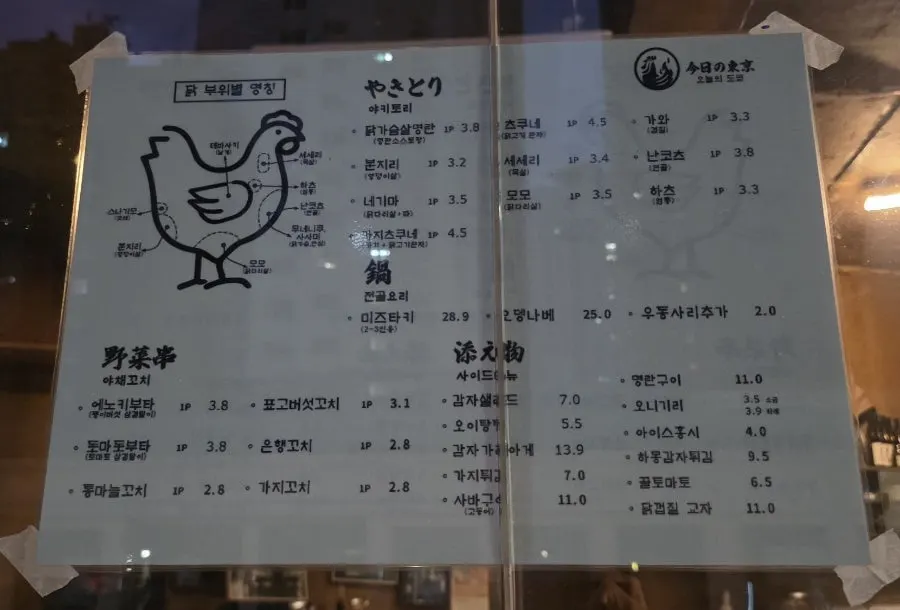 닭 부위별 명칭
데바사키
(날개)
세세리
(목살)
하츠
(염통)
난코츠
(연골)
무네니쿠,
사사미
(닭가슴,안심)
모모
(닭다리살)
스나기모
본지리
(엉덩이살)
今日の東京
오늘의 도쿄
やきとり
야키토리
닭가슴살명란 1P 3.8
(명란소스토핑)
본지리 1P 3.2
(엉덩이살)
네기마 1P 3.5
(닭다리살+파)
가지츠쿠네 1P 4.5
츠쿠네 1P 4.5
(닭고기 완자)
세세리 1P 3.4
(목살)
모모 1P 3.5
(닭다리살)
가와 1P 3.3
(껍질)
난코츠 1P 3.8
(연골)
하츠 1P 3.3
(염통)
鍋
전골요리
미즈타키 28.9
(2-3인용)
오뎅나베 25.0
우동사리추가 2.0
野菜串
야채꼬치
에노키부타 1P 3.8
(팽이버섯 삼겹말이)
토마토부타 1P 3.8
(토마토 삼겹말이)
통마늘꼬치 1P 2.8
표고버섯꼬치 1P 3.1
은행꼬치 1P 2.8
가지꼬치 1P 2.8
添え物
사이드메뉴
감자샐러드 7.0
오이탕 5.5
감자가라아게 13.9
가지튀김 7.0
사바구이 11.0
(고등어)
명란구이 11.0
오니기리 3.5
3.9
아이스홍시 4.0
하몽감자튀김 9.5
꿀토마토 6.5
닭껍질 교자 11.0